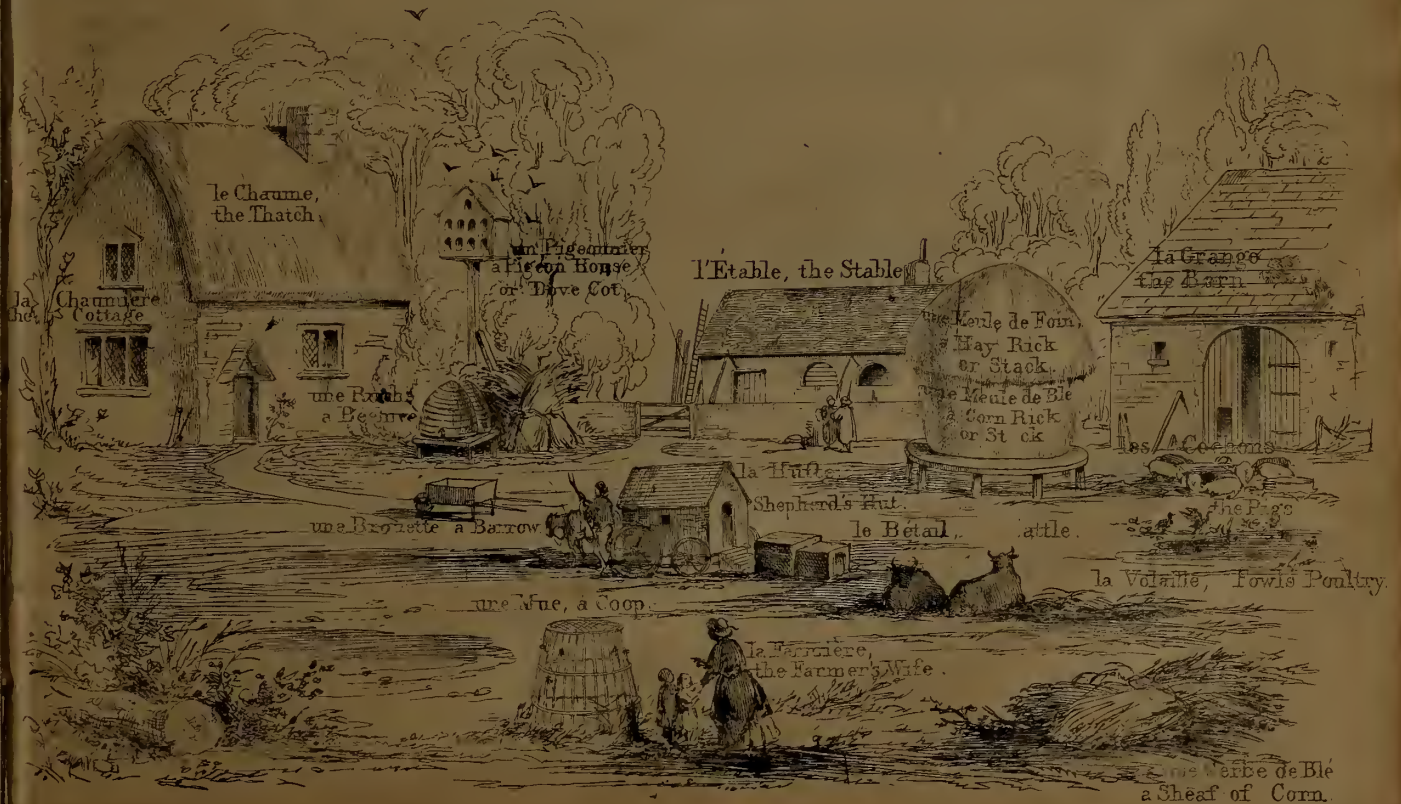 le Chaume,
the Thatch,
un Pigeonnier
a Pigeon House
or Dove Cot
l'Etable, the Stable
la Grange
the Barn
la Chaumiere
the Cottage
une Meule de Foin,
Hay Rick
or Stack
Meule de Blé
a Corn Rick
or St ck
une
a Beehive
les Cochons
the Pigs
la Hutte
Shepherd's Hut.
une Brouette a Barrow
le Bétail, attle.
la Volaille, Fowls Poultry.
une Mue, a Coop.
la Fermière,
the Farmer's Wife.
erbe de Blé
a Sheaf of Corn.